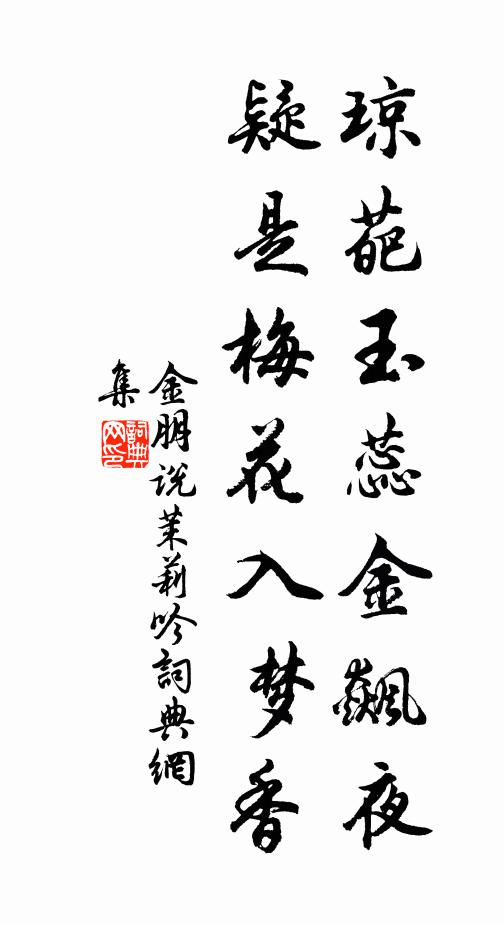 琼葩玉蕊金飙夜
疑是梅花入梦香
金朋说茉莉吟詞典網
集
詞典
网印